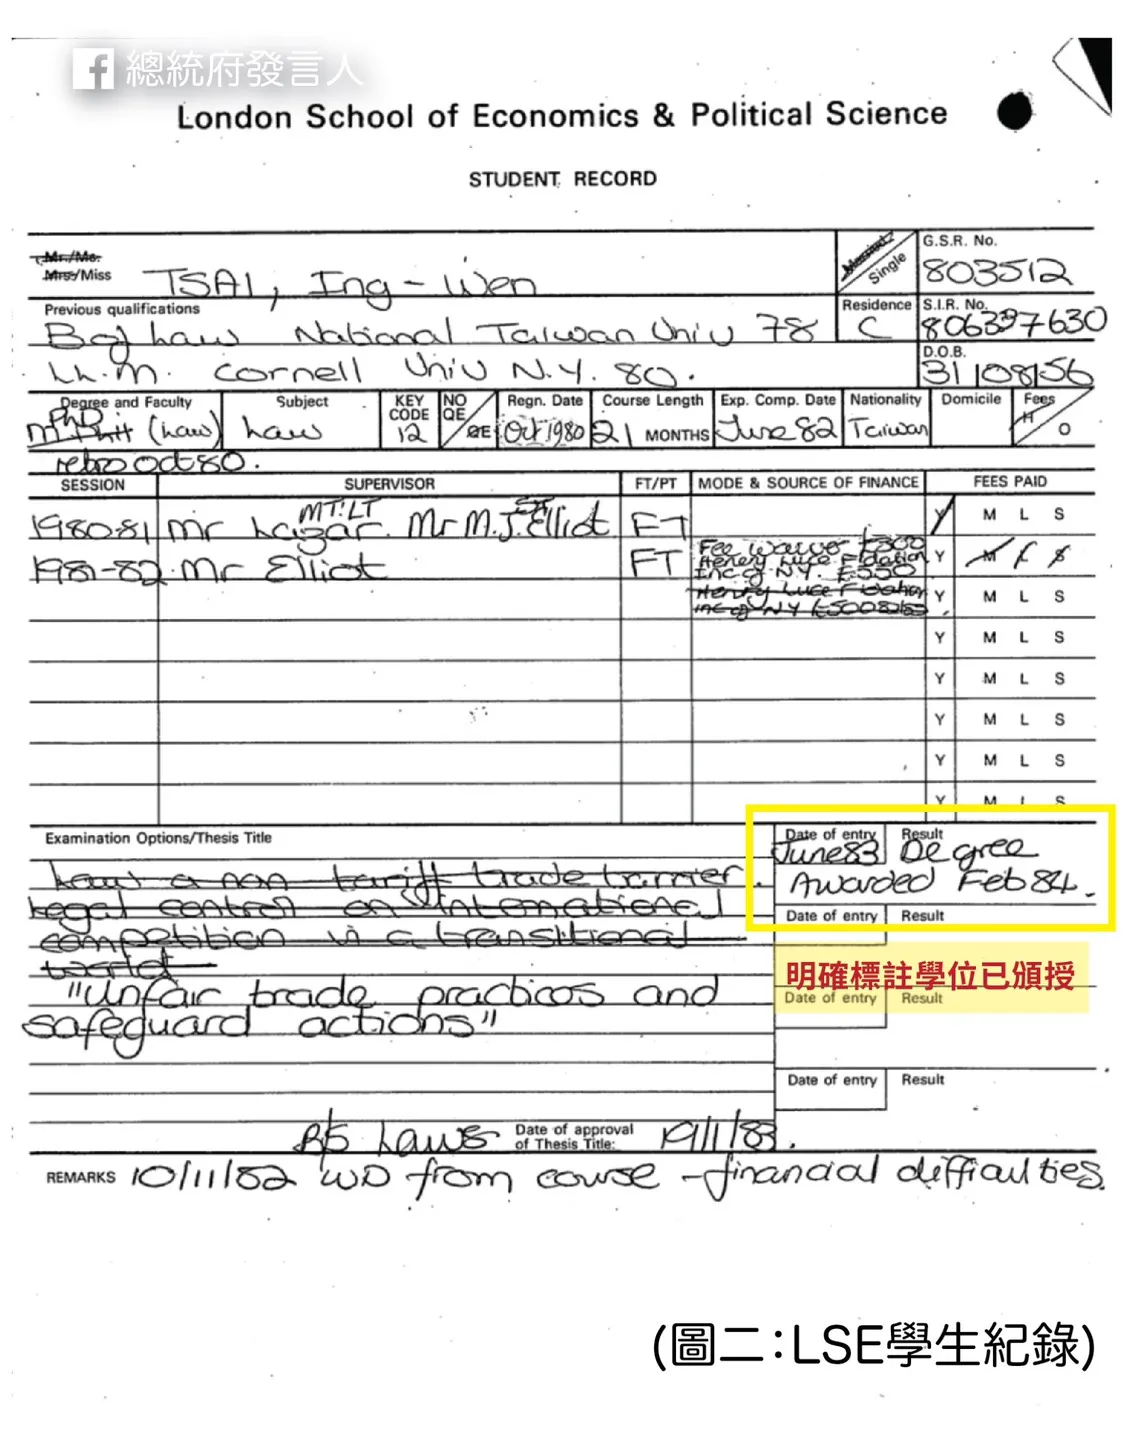 總統府發言人
London School of Economics & Political Science
STUDENT RECORD
Mr./Ms.
Mrs./Miss TSAI, Ing-Wen
Married/
Single
G.S.R. No.
803512
Previous qualifications
Bof Law National Taiwan Univ 78
LL.M. Cornell Univ N.Y. 80.
Residence
C
S.I.R. No.
806337630
D.O.B.
31/08/56
Degree and Faculty Subject KEY CODE NO QE/QE Regn. Date Course Length Exp. Comp. Date Nationality Domicile Fees
PhD
M Phil (Law) Law 12 Oct 1980 21 MONTHS June 82 Taiwan H/O
retro oct 80.
SESSION SUPERVISOR FT/PT MODE & SOURCE OF FINANCE FEES PAID
1980-81 Mr Lazar. MT:LT Mr M.J. Elliot ST FT Y M L S
1981-82 Mr Elliot FT Fee waiver £500 Y M L S
Henry Luce Fdation
Inc of N.Y. £550
Henry Luce Fdation Y M L S
Inc of NY £500 82/83
Y M L S
Y M L S
Y M L S
Y M L S
Y M L S
Examination Options/Thesis Title
Law a non tariff trade barrier.
Legal control on international
competition in a transitional
world
"Unfair trade practices and
safeguard actions"
Date of entry Result
June 83 Degree
Awarded Feb 84.
Date of entry Result
明確標註學位已頒授
Date of entry Result
Date of entry Result
B/S Laws Date of approval of Thesis Title: 19/1/83.
REMARKS 10/11/82 WD from course - financial difficulties.
(圖二:LSE學生紀錄)